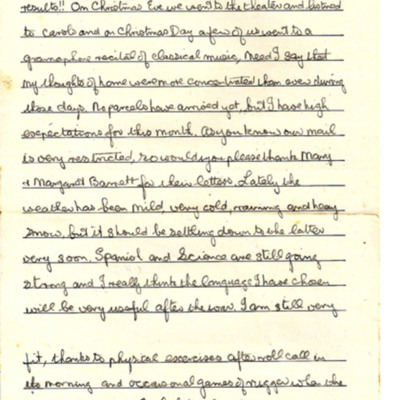 results!! On Christmas Eve we went to the theater and listened
to carols and on Christmas Day a few of us went to a
gramophone recital of classical music, need I say that
my thoughts of home were more concentrated than ever during
those days. No parcels have arrived yet, but I have high
expectations for this month. As you know our mail
is very restricted, so would you please thank Mary
& Margaret Barnett for their letters. Lately the
weather has been mild, very cold, raining and heavy
snow, but it should be settling down to the latter
very soon. Spanish and Science are still going
strong and I really think the language I have chosen
will be very useful after the war. I am still very
fit, thanks to physical exercises after roll call in
the morning and occasional games of rugger when the